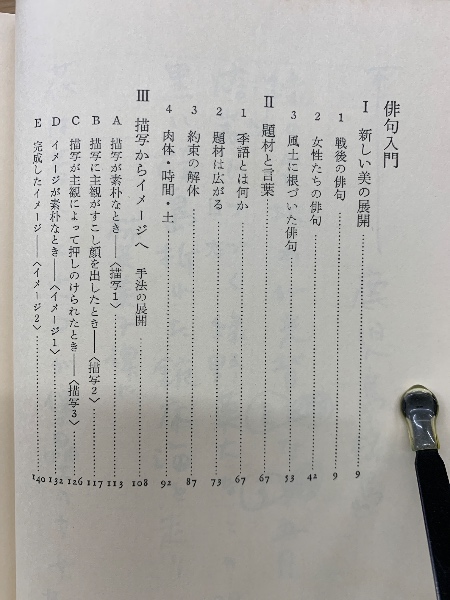 俳句入門
Ⅰ 新しい美の展開……9
1 戦後の俳句……9
2 女性たちの俳句……42
3 風土に根づいた俳句……53
Ⅱ 題材と言葉……67
1 季語とは何か……67
2 題材は広がる……73
3 約束の解体……87
4 肉体・時間・土……92
Ⅲ 描写からイメージへ 手法の展開……108
A 描写が素朴なとき——〈描写1〉……113
B 描写に主観がすこし顔を出したとき——〈描写2〉……117
C 描写が主観によって押しのけられたとき——〈描写3〉……126
D イメージが素朴なとき——〈イメージ1〉……132
E 完成したイメージ——〈イメージ2〉……140